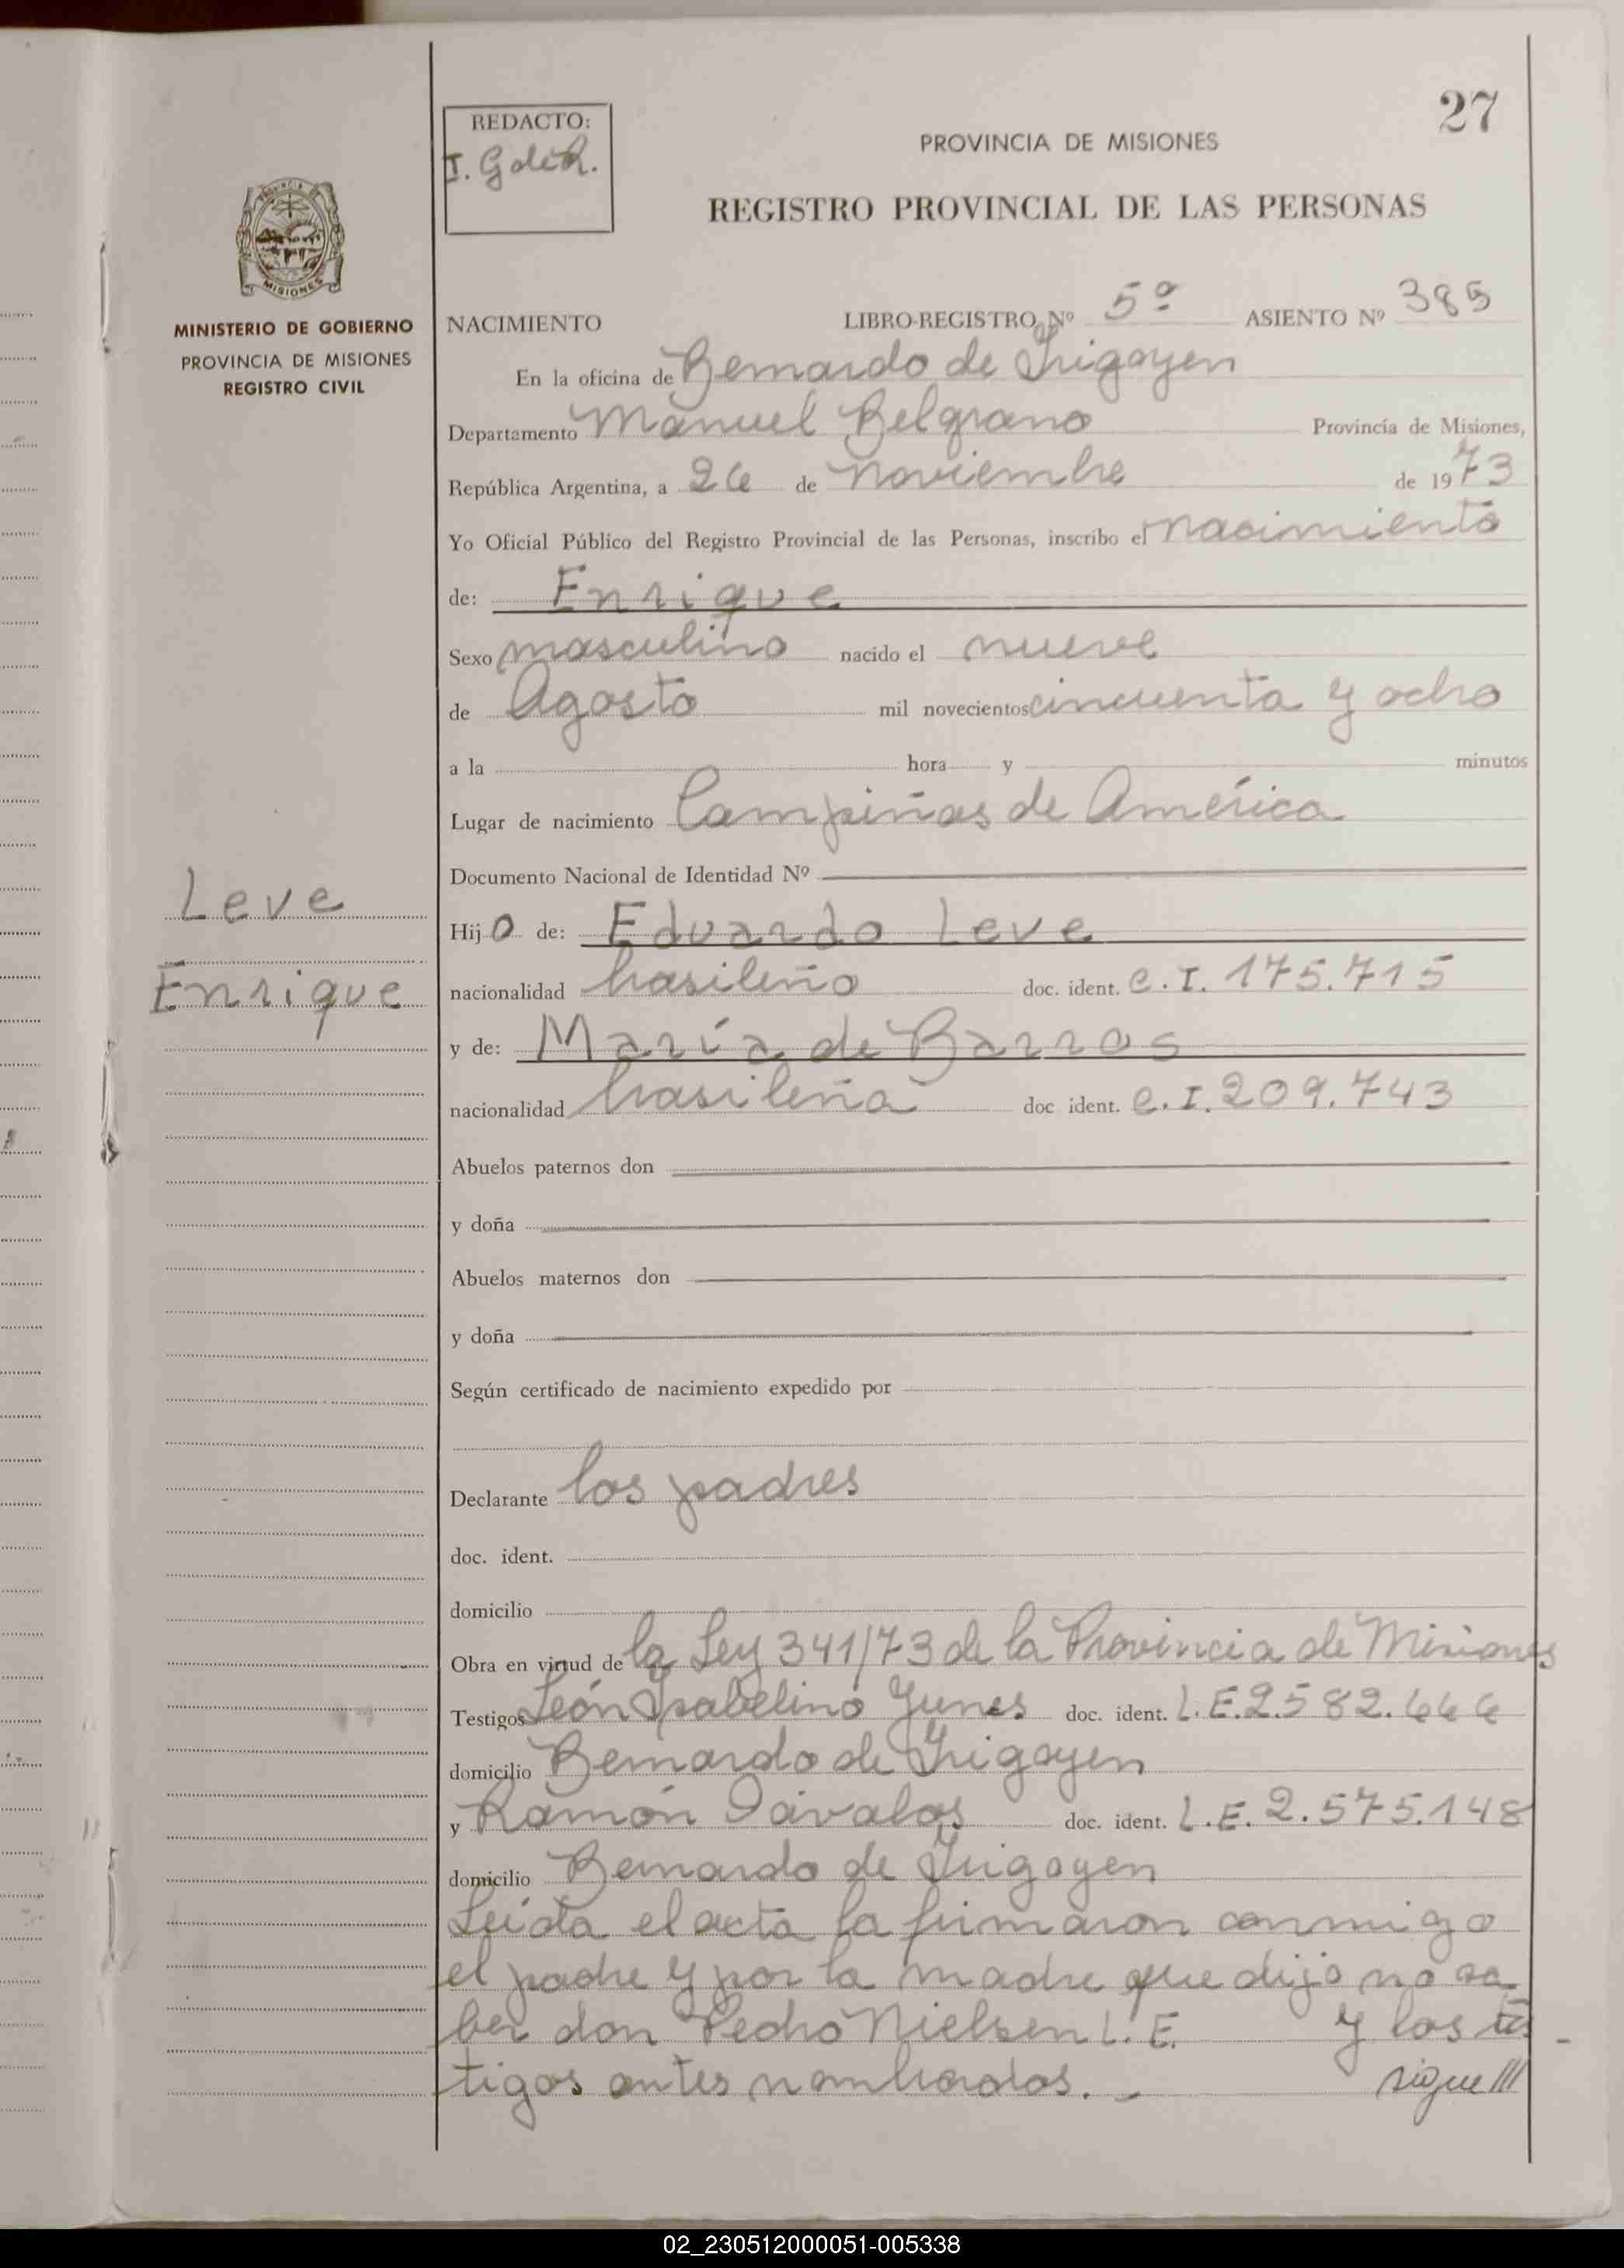 27
REDACTO:
PROVINCIA DE MISIONES
REGISTRO PROVINCIAL DE LAS PERSONAS
MISIONES
MINISTERIO DE GOBIERNO
PROVINCIA DE MISIONES
REGISTRO CIVIL
NACIMIENTO LIBRO-REGISTRO Nº 5º ASIENTO Nº 385
En la oficina de Bernardo de Irigoyen
Departamento Manuel Belgrano Provincia de Misiones,
República Argentina, a 26 de noviembre de 1973
Yo Oficial Público del Registro Provincial de las Personas, inscribo el nacimiento
de: Enrique
Sexo masculino nacido el nueve
de Agosto mil novecientos cincuenta y ocho
a la hora y minutos
Lugar de nacimiento Campiñas de América
Documento Nacional de Identidad Nº
Leve
Enrique
Hijo de: Eduardo Leve
nacionalidad brasileño doc. ident. C.I. 175.715
y de: María de Barros
nacionalidad brasileña doc ident. C.I. 209.743
Abuelos paternos don
y doña
Abuelos maternos don
y doña
Según certificado de nacimiento expedido por
Declarante los padres
doc. ident.
domicilio
Obra en virtud de la Ley 341/73 de la Provincia de Misiones
Testigos León Isabelino Yunes doc. ident. L.E. 2.582.666
domicilio Bernardo de Irigoyen
y Ramón Dávalos doc. ident. L.E. 2.575.148
domicilio Bernardo de Irigoyen
Leída el acta la firmaron conmigo
el padre y por la madre que dijo no sa-
ber don Pedro Nielsen L.E. y los tes-
tigos antes nombrados. -
sigue///
02_230512000051-005338